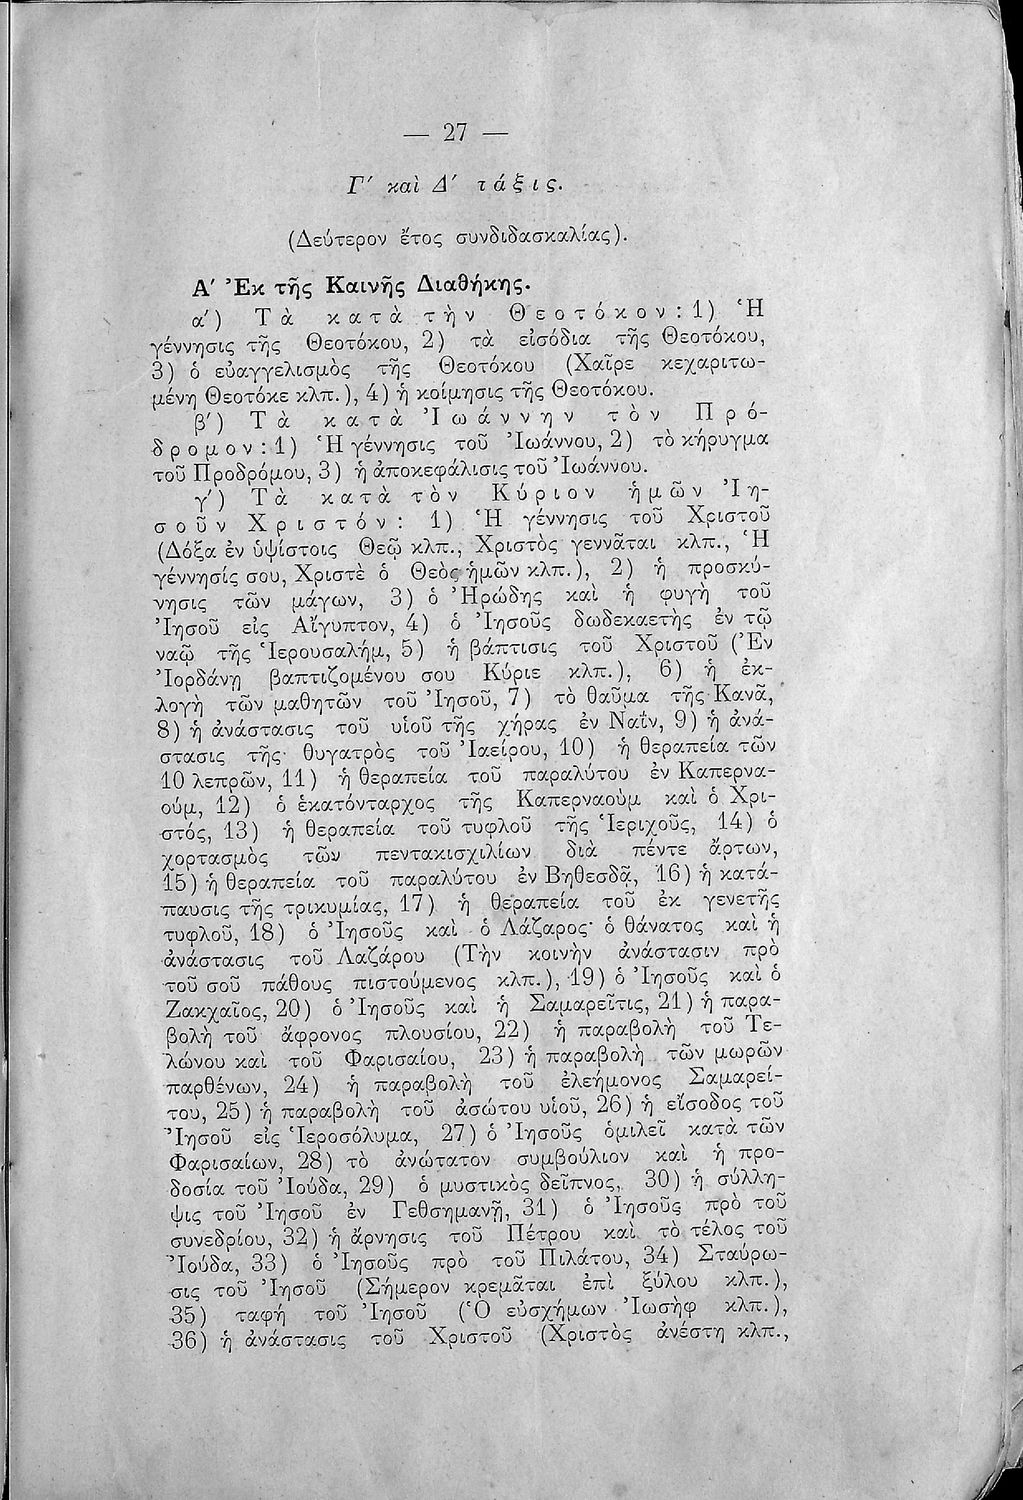 — 27 —
Γ′ καὶ Δ′ τάξις.
(Δεύτερον ἔτος συνδιδασκαλίας).
Α′ Ἐκ τῆς Καινῆς Διαθήκης.
α′) Τὰ κατὰ τὴν Θεοτόκον: 1) Ἡ
γέννησις τῆς Θεοτόκου, 2) τὰ εἰσόδια τῆς Θεοτόκου,
3) ὁ εὐαγγελισμὸς τῆς Θεοτόκου (Χαῖρε κεχαριτω-
μένη Θεοτόκε κλπ.), 4) ἡ κοίμησις τῆς Θεοτόκου.
β′) Τὰ κατὰ Ἰωάννην τὸν Πρό-
δρομον: 1) Ἡ γέννησις τοῦ Ἰωάννου, 2) τὸ κήρυγμα
τοῦ Προδρόμου, 3) ἡ ἀποκεφάλισις τοῦ Ἰωάννου.
γ′) Τὰ κατὰ τὸν Κύριον ἡμῶν Ἰη-
σοῦν Χριστόν: 1) Ἡ γέννησις τοῦ Χριστοῦ
(Δόξα ἐν ὑψίστοις Θεῷ κλπ., Χριστὸς γεννᾶται κλπ., Ἡ
γέννησίς σου, Χριστὲ ὁ Θεὸς ἡμῶν κλπ.), 2) ἡ προσκύ-
νησις τῶν μάγων, 3) ὁ Ἡρώδης καὶ ἡ φυγὴ τοῦ
Ἰησοῦ εἰς Αἴγυπτον, 4) ὁ Ἰησοῦς δωδεκαετὴς ἐν τῷ
ναῷ τῆς Ἱερουσαλήμ, 5) ἡ βάπτισις τοῦ Χριστοῦ (Ἐν
Ἰορδάνῃ βαπτιζομένου σου Κύριε κλπ.), 6) ἡ ἐκ-
λογὴ τῶν μαθητῶν τοῦ Ἰησοῦ, 7) τὸ θαῦμα τῆς Κανᾶ,
8) ἡ ἀνάστασις τοῦ υἱοῦ τῆς χήρας ἐν Ναΐν, 9) ἡ ἀνά-
στασις τῆς θυγατρὸς τοῦ Ἰαείρου, 10) ἡ θεραπεία τῶν
10 λεπρῶν, 11) ἡ θεραπεία τοῦ παραλύτου ἐν Καπερνα-
ούμ, 12) ὁ ἑκατόνταρχος τῆς Καπερναοὺμ καὶ ὁ Χρι-
στός, 13) ἡ θεραπεία τοῦ τυφλοῦ τῆς Ἱεριχοῦς, 14) ὁ
χορτασμὸς τῶν πεντακισχιλίων διὰ πέντε ἄρτων,
15) ἡ θεραπεία τοῦ παραλύτου ἐν Βηθεσδᾷ, 16) ἡ κατά-
παυσις τῆς τρικυμίας, 17) ἡ θεραπεία τοῦ ἐκ γενετῆς
τυφλοῦ, 18) ὁ Ἰησοῦς καὶ ὁ Λάζαρος· ὁ θάνατος καὶ ἡ
ἀνάστασις τοῦ Λαζάρου (Τὴν κοινὴν ἀνάστασιν πρὸ
τοῦ σοῦ πάθους πιστούμενος κλπ.), 19) ὁ Ἰησοῦς καὶ ὁ
Ζακχαῖος, 20) ὁ Ἰησοῦς καὶ ἡ Σαμαρεῖτις, 21) ἡ παρα-
βολὴ τοῦ ἄφρονος πλουσίου, 22) ἡ παραβολὴ τοῦ Τε-
λώνου καὶ τοῦ Φαρισαίου, 23) ἡ παραβολὴ τῶν μωρῶν
παρθένων, 24) ἡ παραβολὴ τοῦ ἐλεήμονος Σαμαρεί-
του, 25) ἡ παραβολὴ τοῦ ἀσώτου υἱοῦ, 26) ἡ εἴσοδος τοῦ
Ἰησοῦ εἰς Ἱεροσόλυμα, 27) ὁ Ἰησοῦς ὁμιλεῖ κατὰ τῶν
Φαρισαίων, 28) τὸ ἀνώτατον συμβούλιον καὶ ἡ προ-
δοσία τοῦ Ἰούδα, 29) ὁ μυστικὸς δεῖπνος, 30) ἡ σύλλη-
ψις τοῦ Ἰησοῦ ἐν Γεθσημανῇ, 31) ὁ Ἰησοῦς πρὸ τοῦ
συνεδρίου, 32) ἡ ἄρνησις τοῦ Πέτρου καὶ τὸ τέλος τοῦ
Ἰούδα, 33) ὁ Ἰησοῦς πρὸ τοῦ Πιλάτου, 34) Σταύρω-
σις τοῦ Ἰησοῦ (Σήμερον κρεμᾶται ἐπὶ ξύλου κλπ.),
35) ταφή τοῦ Ἰησοῦ (Ὁ εὐσχήμων Ἰωσὴφ κλπ.),
36) ἡ ἀνάστασις τοῦ Χριστοῦ (Χριστὸς ἀνέστη κλπ.,